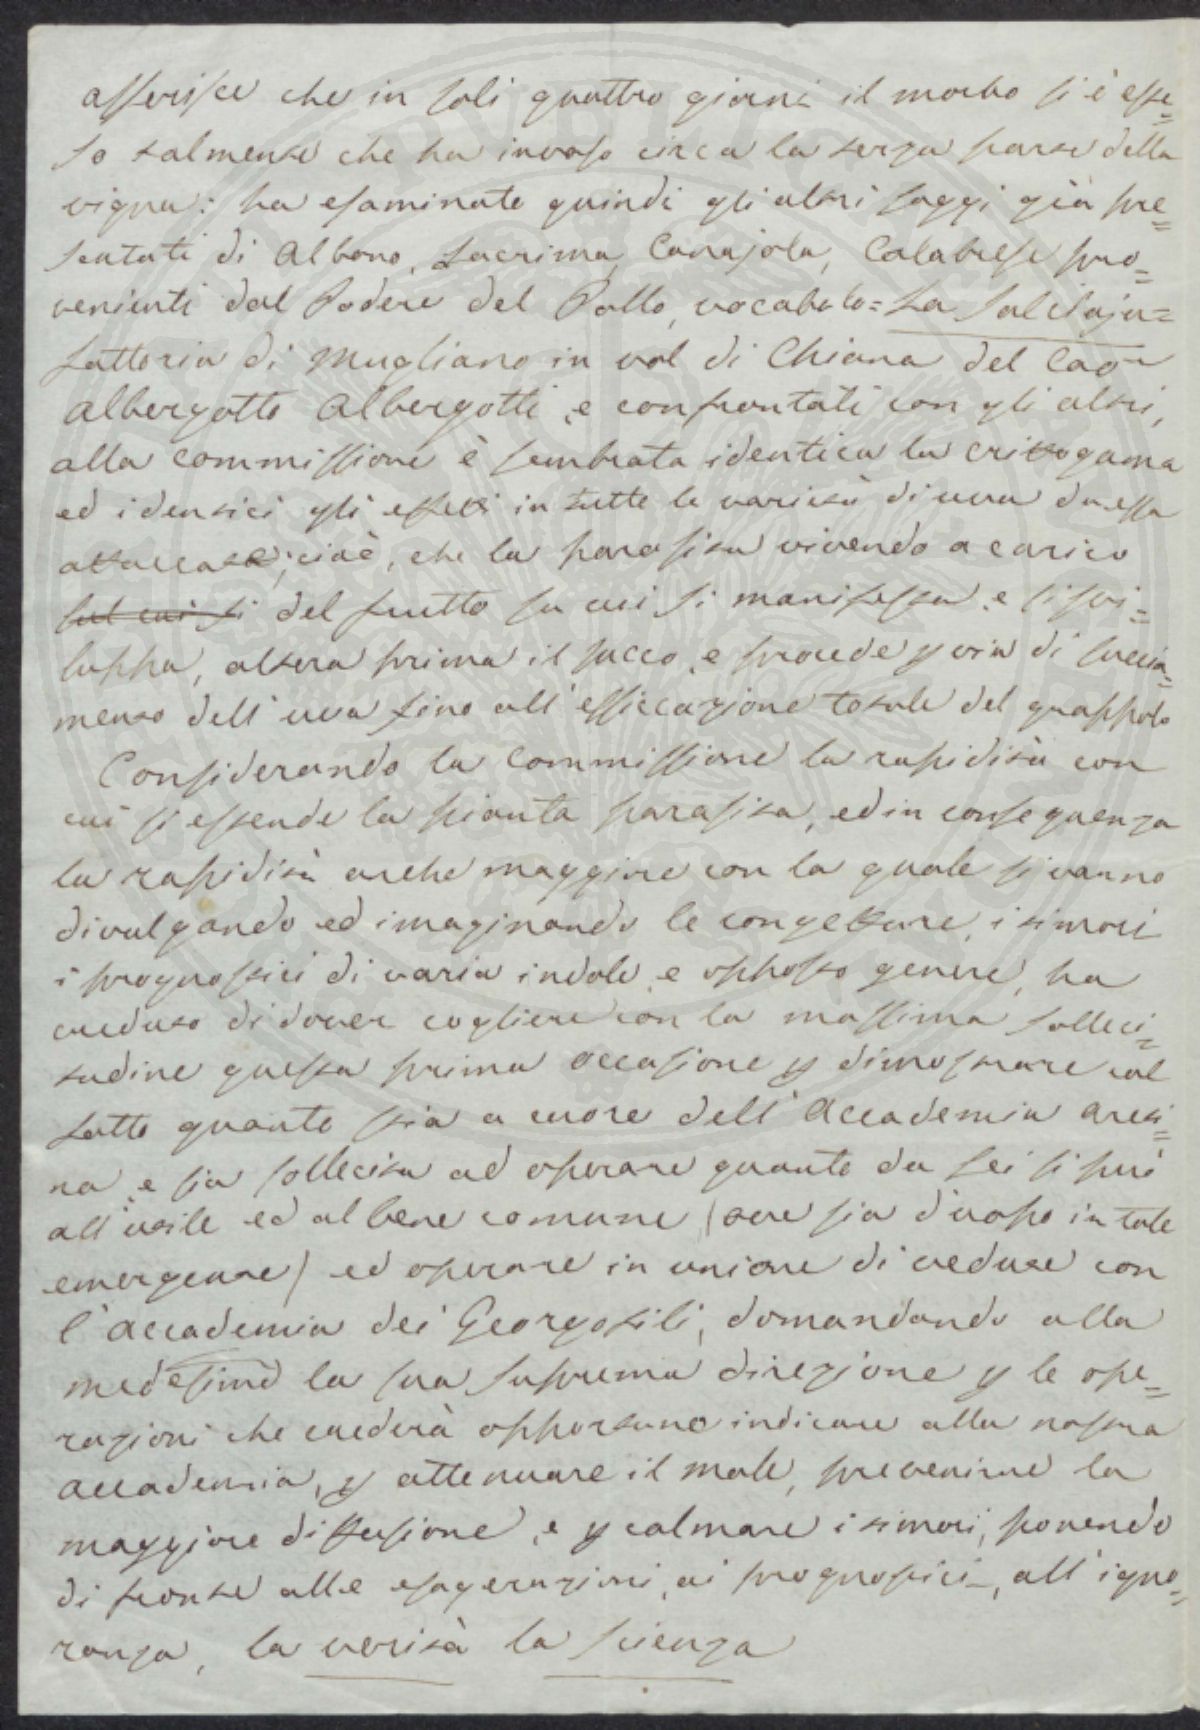 asserisce che in soli quattro giorni il morbo si è este=
so talmente che ha invaso circa la terza parte della
vigna: ha esaminate quindi gli altri saggi già pre=
sentati di Albano, Lacrima, Canajola, Calabrese pro=
venienti dal Podere del Pallo, vocabolo=La
fattoria di Mugliano in val di Chiana del Cav.
Albergotto Albergotti, e confrontati con gli altri,
alla commissione è sembrata identica la crittogama
ed identici gli effetti in tutte le varietà di uva da essa
attaccate, cioè, che la parasita vivendo a carico
sul cui si del frutto su cui si manifesta, e si svi=
luppa, altera prima il succo, e procede p via di succia=
mento dell'uva fino all'essiccazione totale del grappolo
Considerando la Commissione la rapidità con
cui si estende la pianta parasita, ed in conseguenza
la rapidità anche maggiore con la quale si vanno
divulgando ed imaginando le congetture, i timori
i prognostici di varia indole, e opposto genere, ha
creduto di dover cogliere con la massima solleci=
tudine questa prima occasione p dimostrare col
fatto quanto sia a cuore dell'Accademia areti=
na, e sia sollecita ad operare quanto da Lei si può
all'utile ed al bene comune (ove sia d'uopo in tale
emergenze) ed operare in unione di vedute con
l'Accademia dei Georgofili, domandando alla
medesima la sua suprema direzione p le ope=
razioni che crederà opportuno indicare alla nostra
accademia, p attenuare il male, prevenirne la
maggiore diffusione, e p calmare i timori, ponendo
di fronte alle esagerazioni, ai prognostici, all'igno=
ranza, la verità la scienza